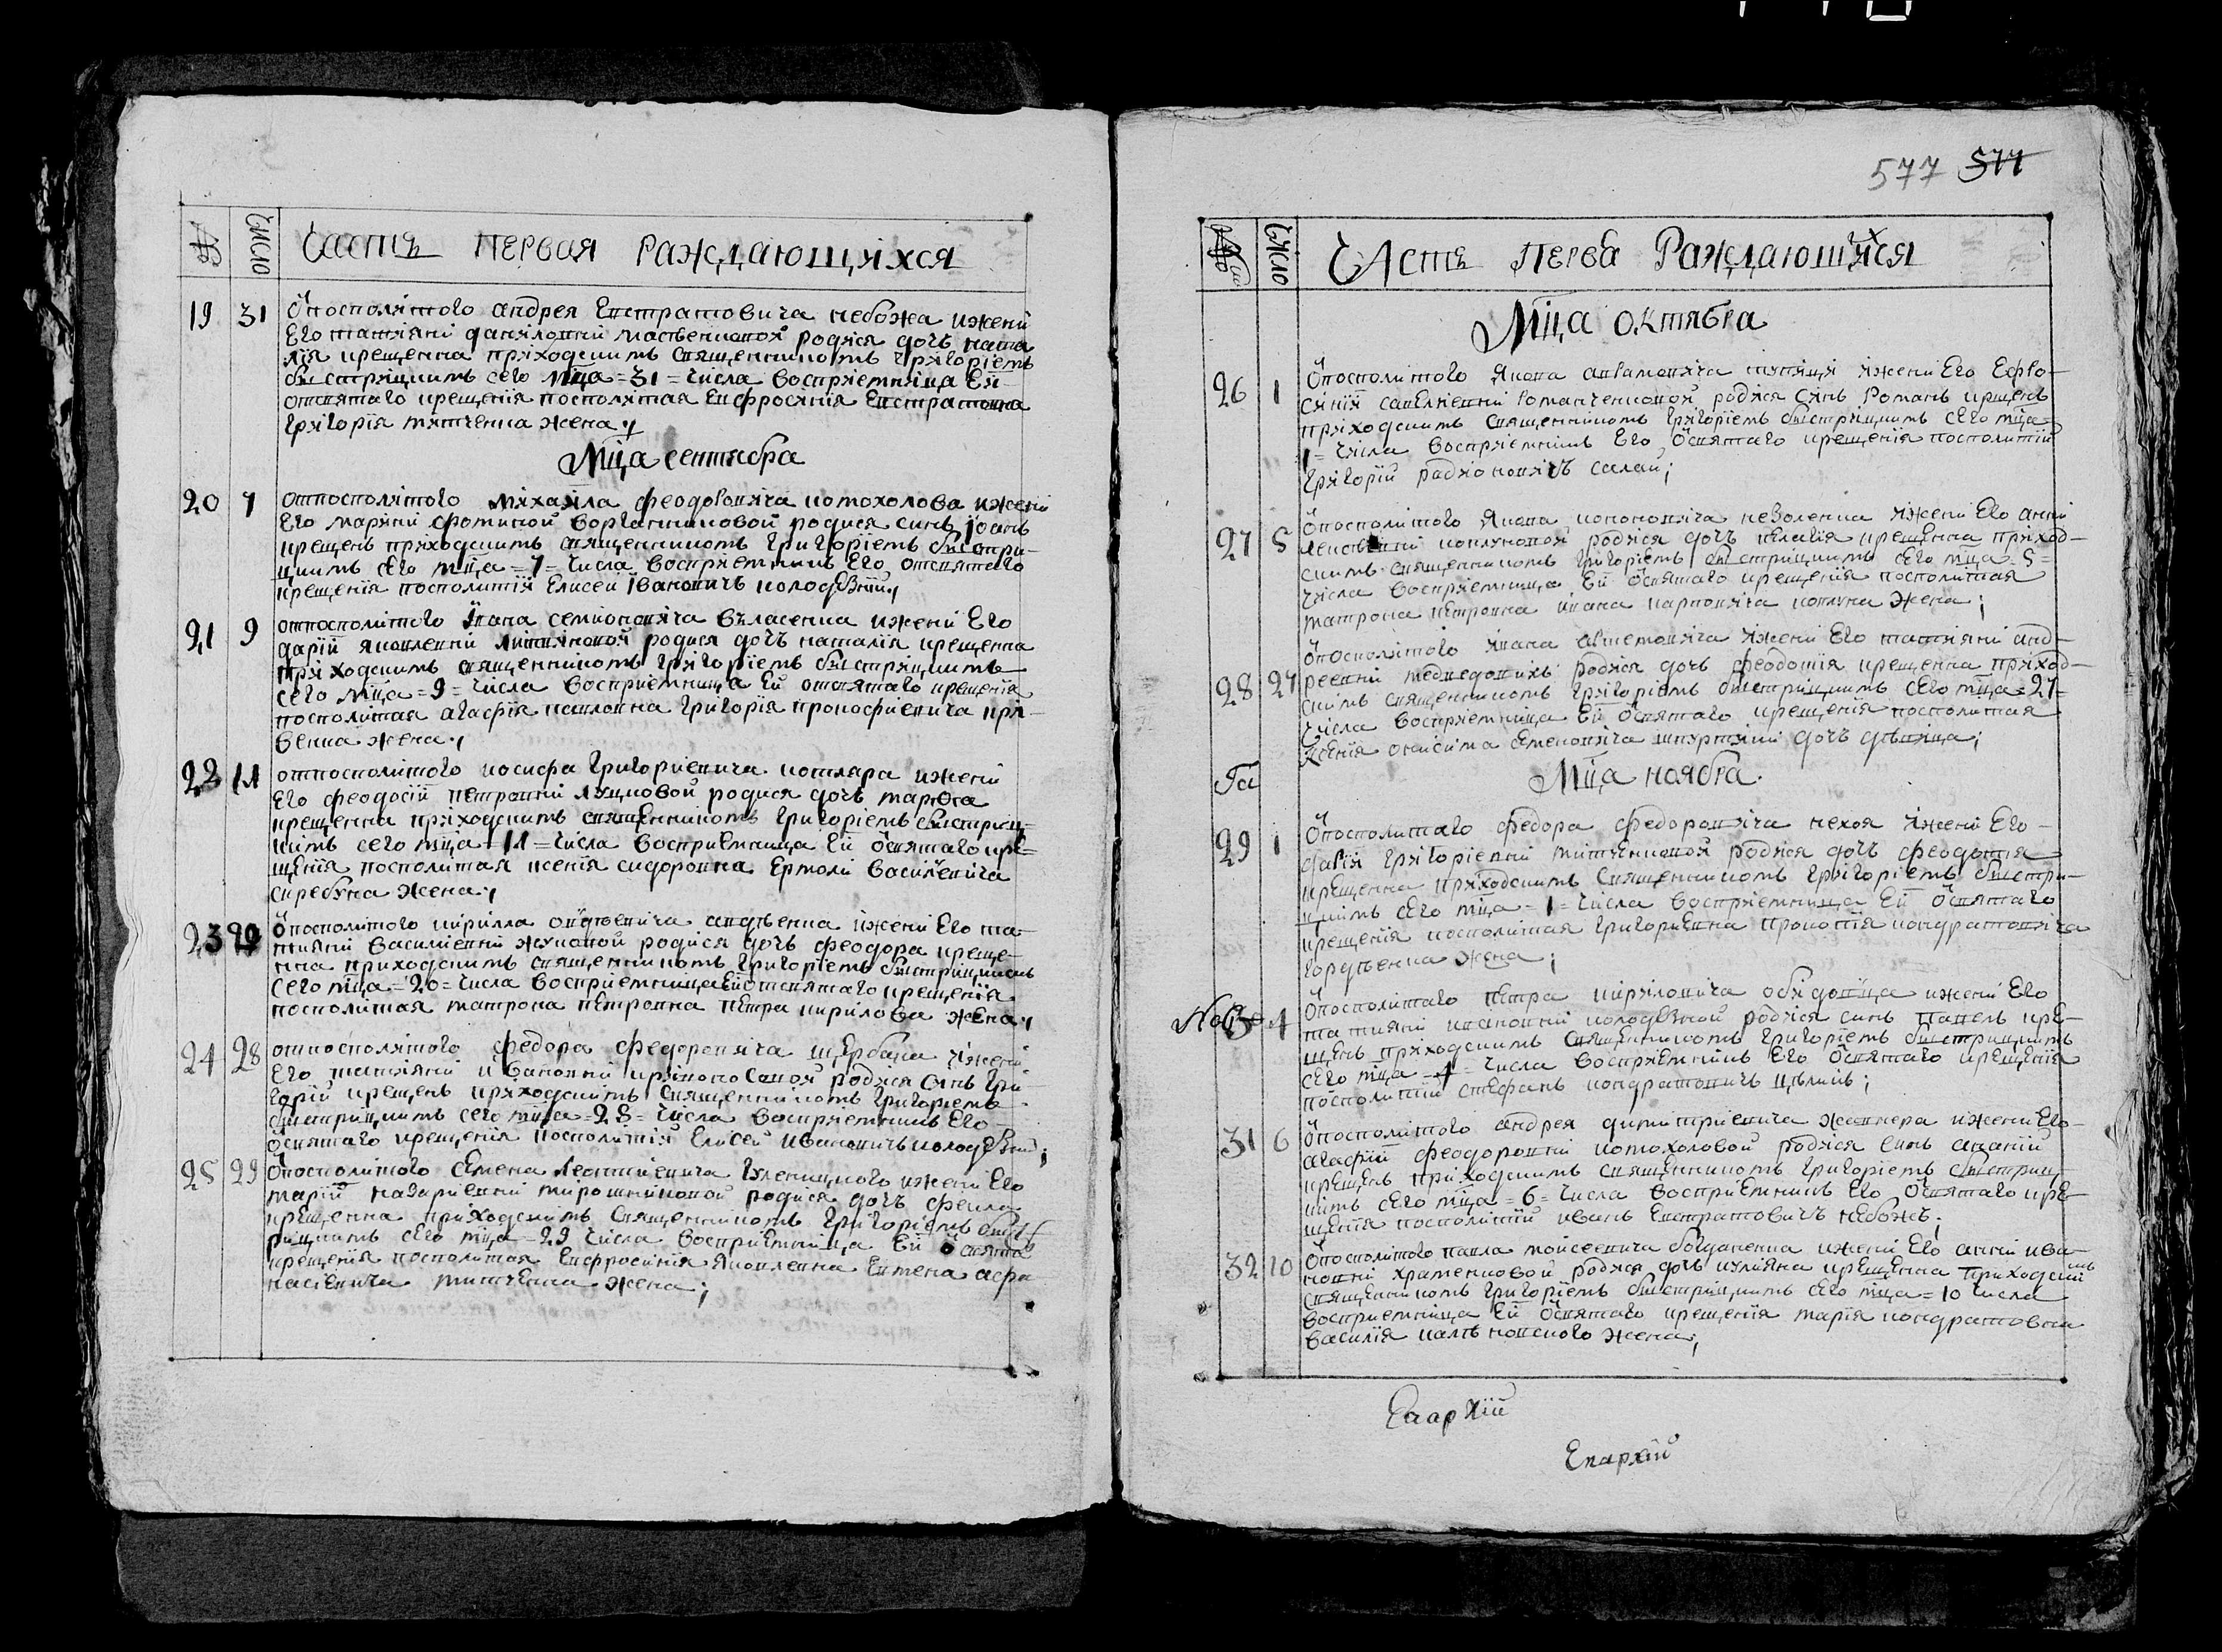 № Число Часть первая раждающихся
19 31 ѿ посполитого андрея Евстратовича небожа и жени
Его татияни даниловни моственковой родися дочь ната
лія крещенна приходскимъ священникомъ григоріемъ
быстрицкимъ сего мца =31= числа восприемница Ей
отсвятаго крещенія посполитая Евфросинія Евстратовна
григорія митченка жена
Мца сентября
20 7 отпосполитого михаила феодоровича котохолова и жени
Его марини фоминой ворганиковой родися синъ іоанъ
крещенъ приходскимъ священникомъ григоріемъ быстри-
цкимъ сего мца =7= числа восприемникъ Его отсвятаго
крещенія посполитій Елисей Івановичъ колодезній
21 9 отпосполитого ивана семионовича власенка и жени Его
дарій яковлевни литвиновой родися дочь наталія крещенна
приходскимъ священникомъ григоріемъ быстрицкимъ
сего мца =9= числа восприемница Ей отсвятаго крещенія
посполитая агафія павловна григорія прокофиевича кри-
венка жена
22 11 отпосполитого иосифа григориевича котляра и жени
Его феодосій петровни луцковой родися дочь марѳа
крещенна приходскимъ священникомъ григоріемъ быстриц-
кимъ сего мца =11= числа восприемница Ей ѿсвятаго кре-
щенія посполитая ксенія сидоровна Ермоли василевича
скребуна жена
23 20 ѿпосполитого кирилла авдѣевича авдѣенка и жени Его та-
тияни василиевни жуковой родися дочь феодора креще-
нна приходскимъ священникомъ григоріемъ быстрицкимъ
сего мца =20= числа восприемница Ей отсвятаго крещенія
посполитая матрона петровна петра кирилова жена
24 28 отпосполитого федора федоровича щербака и жени
Его татияни ивановни кривоносовой родися синъ гри
горій крещенъ приходскимъ священникомъ григоріемъ
быстрицкимъ сего мца =28= числа восприемникъ Его
ѿсвятаго крещенія посполитій Елисей ивановичъ колодезній
25 29 ѿпосполитого семена леонтиевича гленицкого и жени Его
марій назариевни мирошниковой родися дочь фекла
крещенна приходскимъ священникомъ григоріемъ быст
рицкимъ сего мца =29 числа восприемница Ей ѿ святаг
крещенія посполитая Евфросинія яковлевна Евтена афа
насіевича митченка жена
577 577
Число Часть Перва Раждающихся
Мца октября
26 1 ѿпосполитого якова авамовича тупиці и жени Его Ефро-
синій савелиевни романченковой родися синъ Романъ крщенъ
приходскимъ священникомъ григоріемъ быстрицкимъ сего мца
1= числа восприемникъ Его ѿсвятаго крещенія посполитій
григорій радионовичъ салай;
27 5 ѿпосполитого якова кононовича неволенка и жени Его анни
ковтуновой родися дочь пелагія крещенна приход-
скимъ священникомъ григоріемъ быстрицкимъ сего мца 5=
числа восприемница Ей ѿсвятаго крещенія посполитая
матрона петровна ивана карповича ковтуна жена;
28 27 ѿпосполитого ивана артемовича и жени Его татияни анд-
реевни медведовихъ родися дочь феодотія крещенна приход-
скимъ священникомъ григоріемъ быстрицкимъ сего мца =27=
числа восприемница Ей ѿсвятаго крещенія посполитая
ксенія онисима семеновича дочь дѣвица;
Мца ноября
29 1 ѿпосполитаго федора федоровича нехоя и жени Его
дарій григоріевни митченковой родися дочь феодотія
крещенна приходскимъ священникомъ григоріемъ быстри-
цкимъ сего мца =1= числа восприемница Ей ѿсвятаго
крещенія посполитая григориевна прокопія кондратовича
гордѣенка жена;
4 ѿпосполитаго петра кириловича обидовца и жени Его
татияни ивановни колодезной родися синъ павелъ кре-
щенъ приходскимъ священникомъ григоріемъ быстрицкимъ
сего мца =4= числа восприемникъ Его ѿсвятаго крещенія
посполитій стефанъ кондратовичъ
31 6 ѿпосполитого андрея димитриевича жовнера и жени Его
агафій феодоровни котохоловой родися синъ ананій
крещенъ приходскимъ священникомъ григоріемъ быстриц
кимъ сего мца =6= числа восприемникъ Его ѿсвятаго кре-
щенія посполитій иванъ Евстратовичъ небожъ;
32 10 ѿпосполитого павла моисеевича богданенка и жени Его анни ива-
новни храменковой родися дочь иулияна крещенна приходским
священникомъ григоріемъ быстрицкимъ сего мца =10 числа
восприемница Ей ѿсвятаго крещенія марія кондратовна
василія жена;
Епархіи
Епархіи